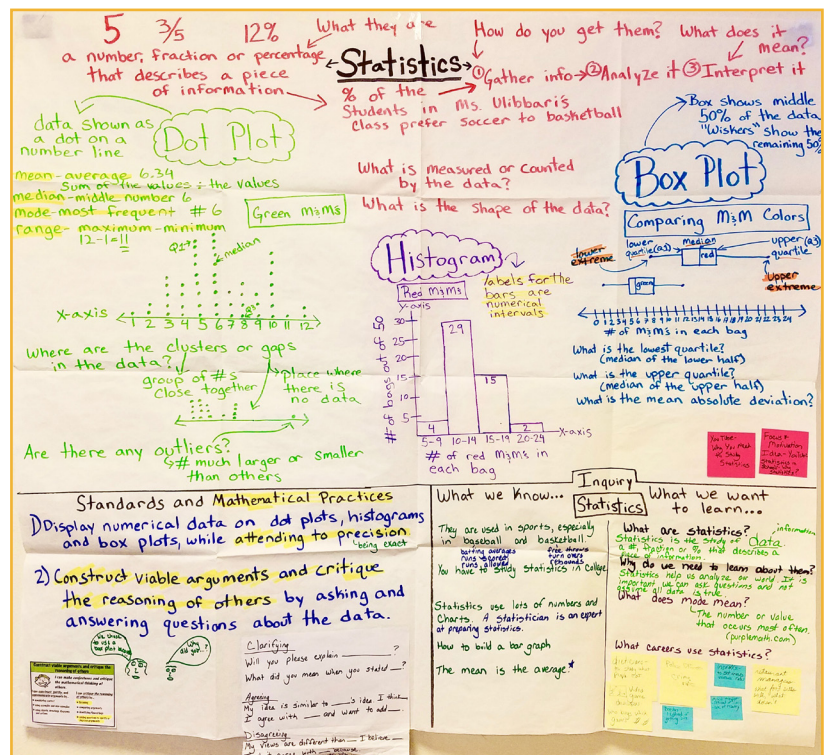 5 3/5 12%
What they are
a number, fraction or percentage
that describes a piece
of information
Statistics
How do you get them?
What does it
mean?
①Gather info→②Analyze it ③Interpret it
% of the
Students in Ms. Ulibbari's
class prefer soccer to basketball
What is measured or counted
by the data?
What is the shape of the data?
data shown as
a dot on a
number line
Dot Plot
mean-average 6.34
Sum of the values ÷ the values
median-middle number 6
mode-most frequent # 6
range- maximum-minimum
12-1=11
Green M&M's
Q1
median
Q3
X-axis
1 2 3 4 5 6 7 8 9 10 11 12
Where are the clusters or gaps
in the data?
group of #s
close together
place where
there is
no data
Are there any outliers?
# much larger or smaller
than others
Histogram
Red M&M's
labels for the
bars are
numerical
intervals
Y-axis
# of bags out of 50
30
25
20
15
10
5
4
29
15
2
5-9 10-14 15-19 20-24
X-axis
# of red M&M's in
each bag
Box shows middle
50% of the data
"Wiskers" show the
remaining 50%
Box Plot
Comparing M&M Colors
lower
extreme
lower
quartile(Q1)
median
upper(Q3)
quartile
red
upper
extreme
green
0 1 2 3 4 5 6 7 8 9 10 11 12 13 14 15 16 17 18 19 20 21 22 23 24
# of M&M's in each bag
What is the lowest quartile?
(median of the lower half)
What is the upper quartile?
(median of the upper half)
What is the mean absolute deviation?
YouTube:
Why You Need
to Study
Statistics
Focus &
Motivation
Idea-YouTube
Standards and Mathematical Practices
1) Display numerical data on dot plots, histograms
and box plots, while attending to precision
being exact
2) Construct viable arguments and critique
the reasoning of others by asking and
answering questions about the data.
Why
did you...?
Construct viable arguments and critique the
reasoning of others
Clarifying
Will you please explain ?
What did you mean when you stated ?
Agreeing
My idea is similar to 's idea. I think
I agree with and want to add
Disagreeing
My views are different than I believe
because
Inquiry
Statistics
What we Know...
They are used in sports, especially
in baseball and basketball.
batting averages
runs scored
runs allowed
free throws
turn overs
rebounds
You have to study statistics in College
Statistics use lots of numbers and
Charts. A statistician is an expert
at preparing statistics.
How to build a bar graph
The mean is the average.*
What we want
to learn...
What are statistics?
information
Statistics is the study of data.
a #, fraction or % that describes a
piece of information.
Why do we need to learn about them?
Statistics help us analyze our world. It is
important we can ask questions and not
assume all data is true.
What does mode mean?
The number or value
that occurs most often.
(purplemath.com)
What careers use statistics?